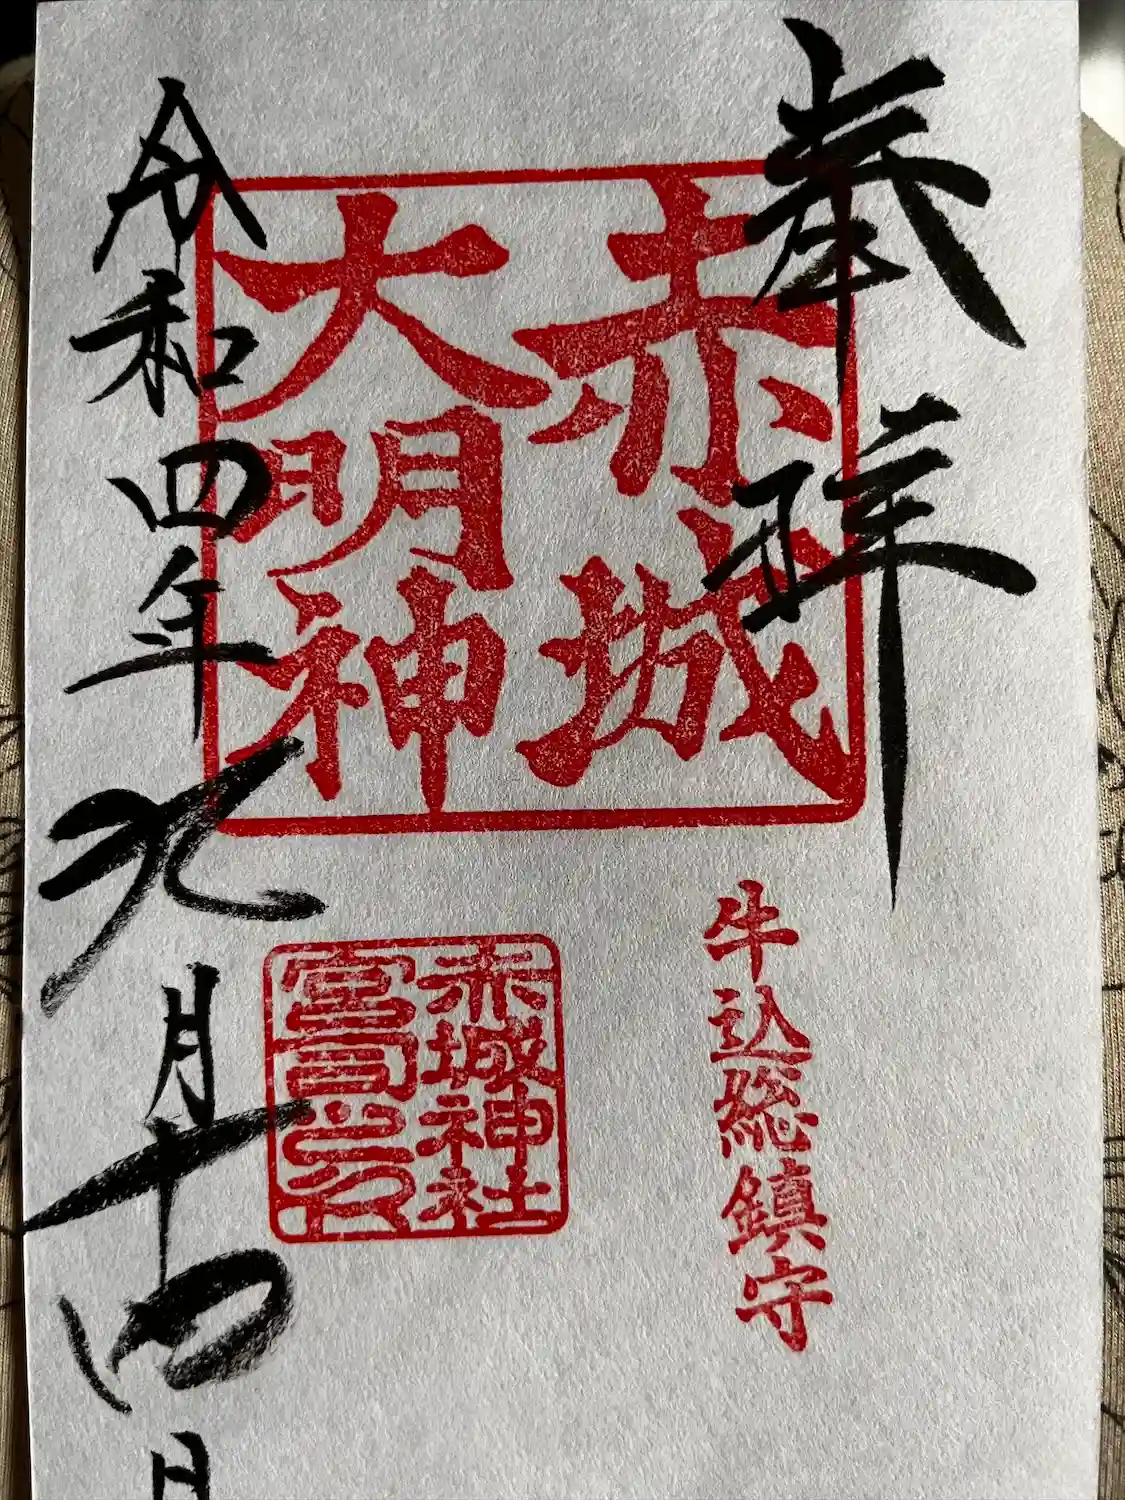 奉拝
赤城
大明神
牛込総鎮守
赤城神社
宮司之印
令和四年九月十四日